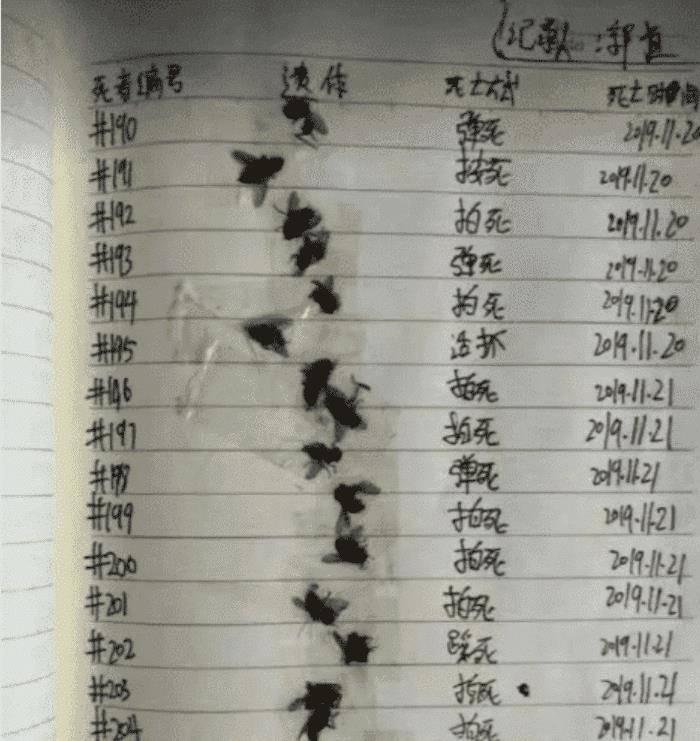 记录人:郭直
死者编号 遗体 死亡方式 死亡时间
#190 弹死 2019.11.20
#191 拍死 2019.11.20
#192 拍死 2019.11.20
#193 弹死 2019.11.20
#194 拍死 2019.11.20
#195 活抓 2019.11.20
#196 拍死 2019.11.21
#197 拍死 2019.11.21
#198 弹死 2019.11.21
#199 拍死 2019.11.21
#200 拍死 2019.11.21
#201 拍死 2019.11.21
#202 踩死 2019.11.21
#203 拍死 2019.11.21
#204 拍死 2019.11.21